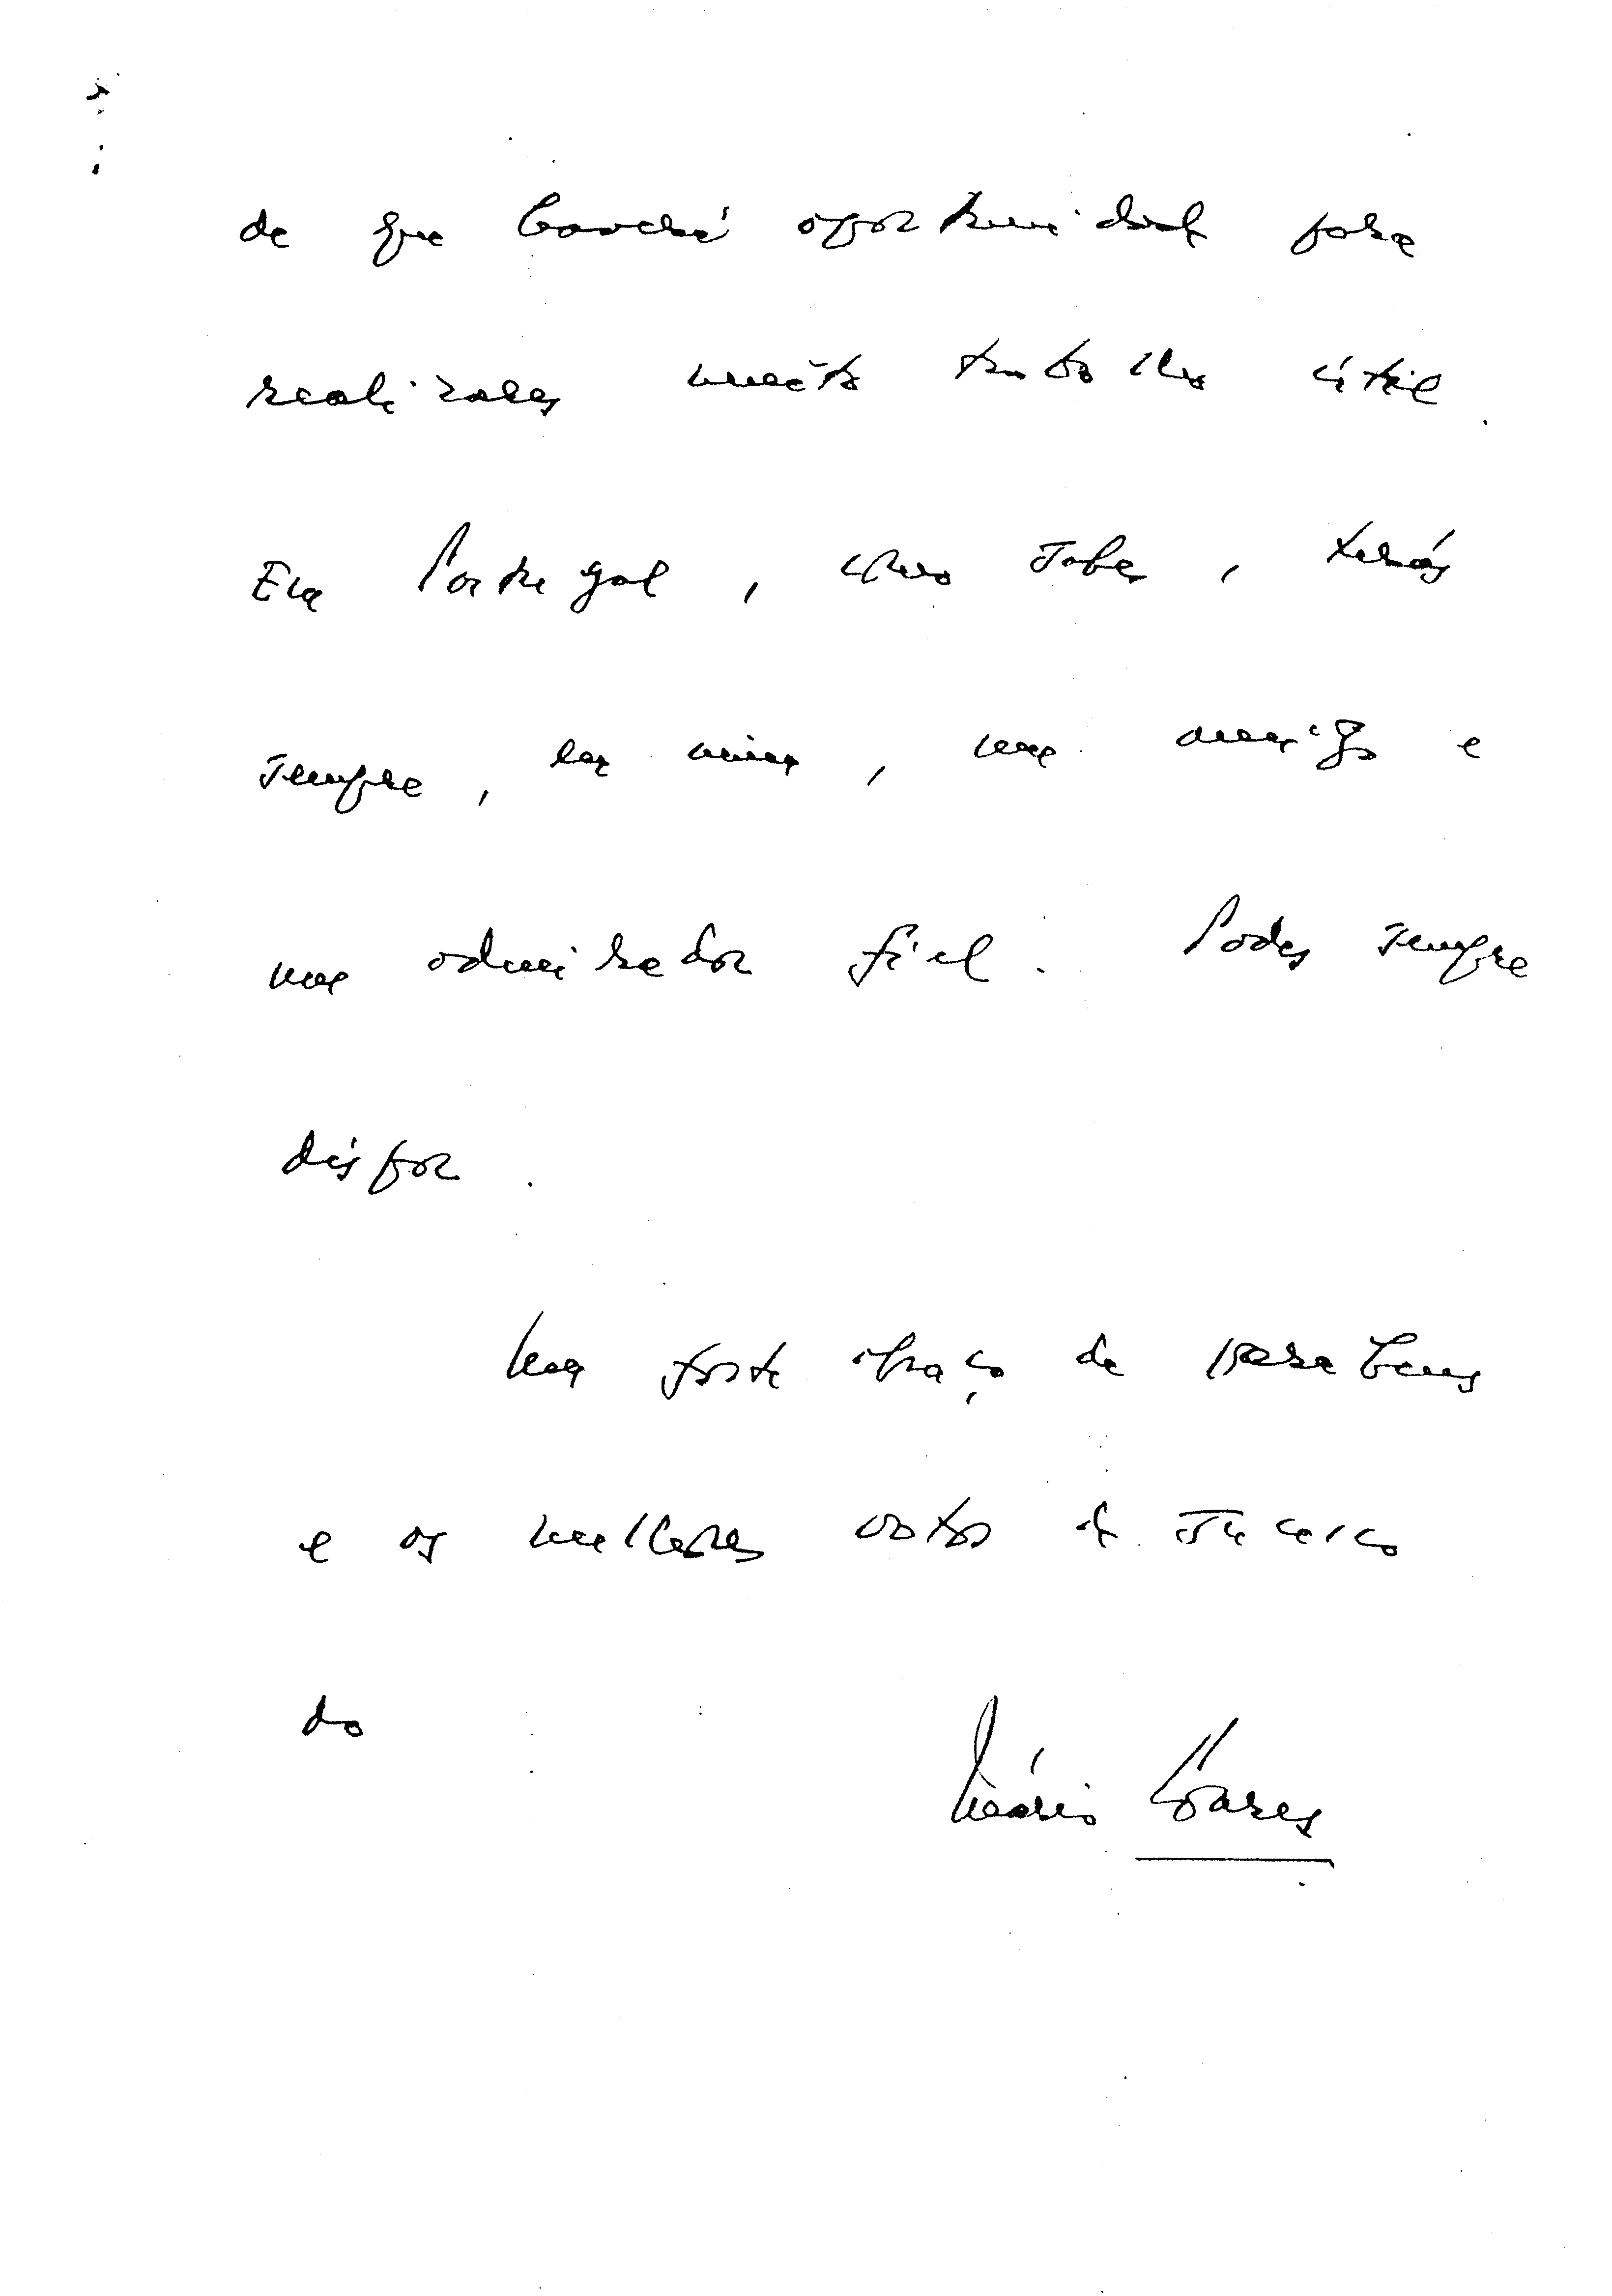 de que haverá oportunidade para
realizares muito trabalho útil.
Em Portugal, como sabes, terás
sempre, em mim, um amigo e
um admirador fiel. Podes sempre
dispor.
Um forte abraço de parabens
e os melhores votos de sucesso
do
Mário Soares